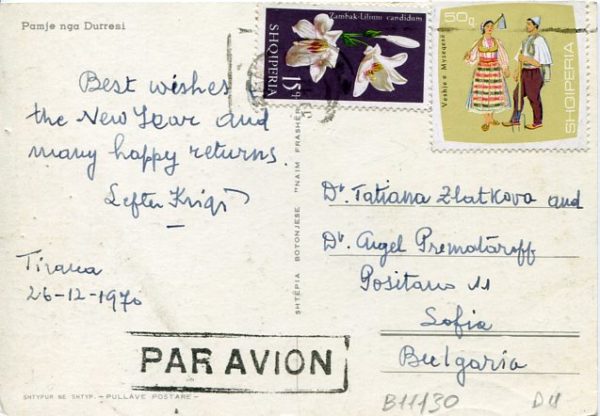 Pamje nga Durresi
Zambak-Lilium candidum
SHQIPERIA
15q
50q
Veshje e Myzeqesë
SHQIPERIA
Best wishes
the New Year and
many happy returns.
Lefter
Tirana
26-12-1970
SHTËPIA BOTONJESE "NAIM FRASHE
Dr. Tatiana Zlatkova and
Dr. Angel Prematároff
Positano 11
Sofia
Bulgaria
PAR AVION
SHTYPUR NE SHTYP. — PULLAVE POSTARE —
B11130 D4